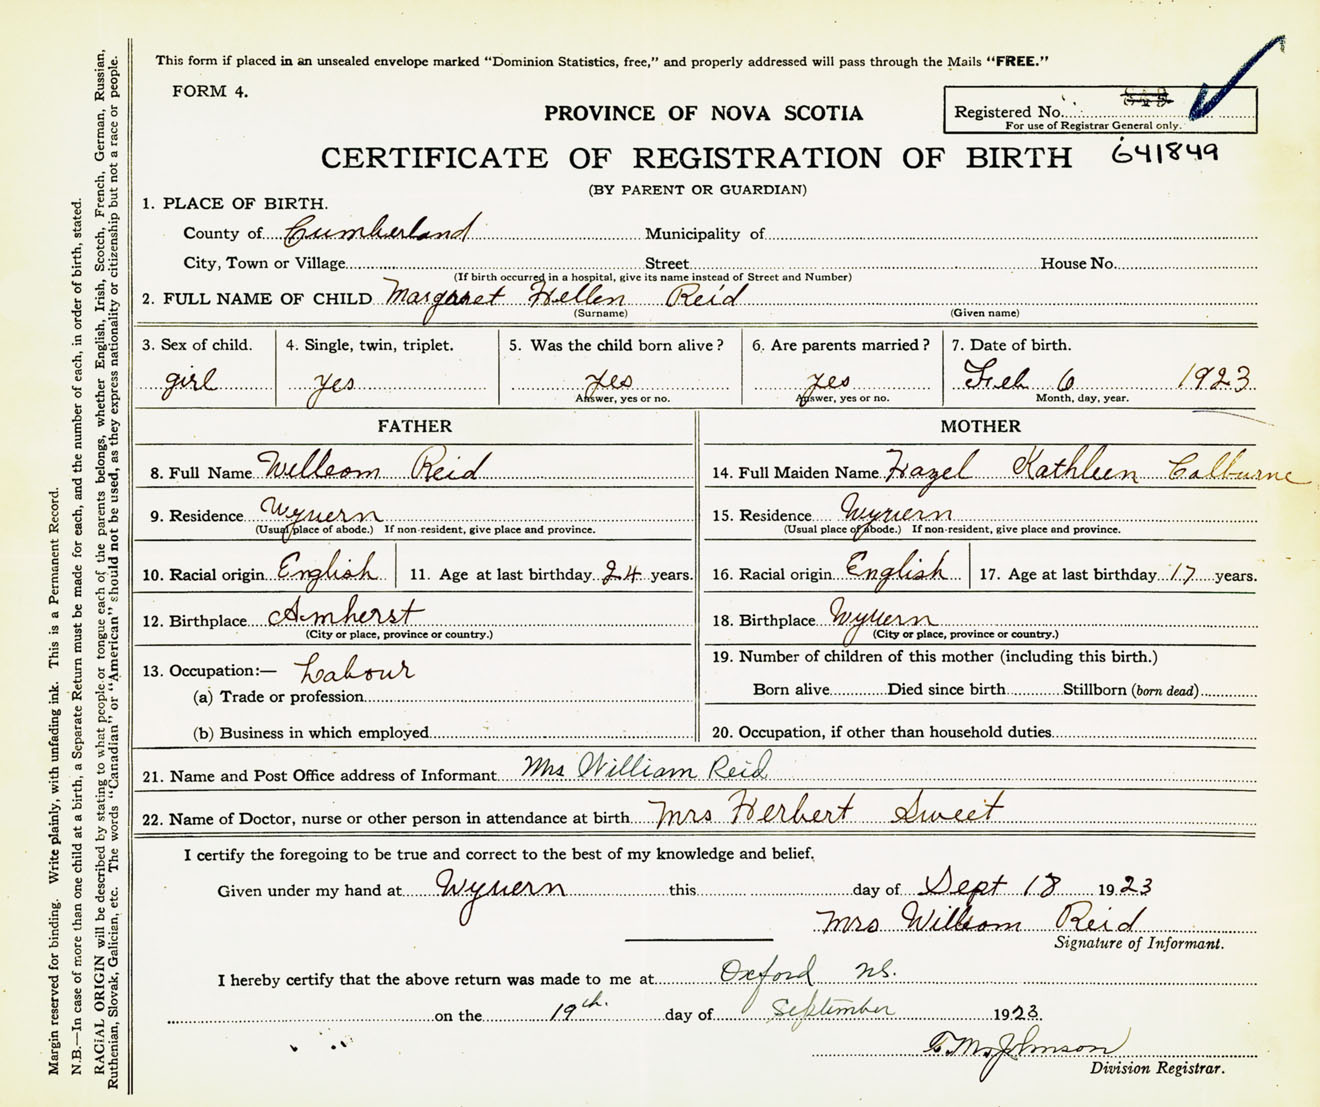 This form if placed in an unsealed envelope marked "Dominion Statistics, free," and properly addressed will pass through the Mails "FREE."
FORM 4.
PROVINCE OF NOVA SCOTIA
Registered No.
For use of Registrar General only.
CERTIFICATE OF REGISTRATION OF BIRTH 641849
(BY PARENT OR GUARDIAN)
1. PLACE OF BIRTH.
County of Cumberland Municipality of
City, Town or Village Street House No.
(If birth occurred in a hospital, give its name instead of Street and Number)
2. FULL NAME OF CHILD Margaret Hellen Reid
(Surname) (Given name)
3. Sex of child. 4. Single, twin, triplet. 5. Was the child born alive? 6. Are parents married? 7. Date of birth.
girl yes yes yes Feb 6 1923
Answer, yes or no. Answer, yes or no. Month, day, year.
FATHER MOTHER
8. Full Name William Reid 14. Full Maiden Name Hazel Kathleen Colburne
9. Residence Wyvern 15. Residence Wyvern
(Usual place of abode.) If non-resident, give place and province. (Usual place of abode.) If non-resident, give place and province.
10. Racial origin English 11. Age at last birthday 24 years. 16. Racial origin English 17. Age at last birthday 17 years.
12. Birthplace Amherst 18. Birthplace Wyvern
(City or place, province or country.) (City or place, province or country.)
13. Occupation:— Labour 19. Number of children of this mother (including this birth.)
(a) Trade or profession Born alive Died since birth Stillborn (born dead)
(b) Business in which employed 20. Occupation, if other than household duties
21. Name and Post Office address of Informant Mrs William Reid
22. Name of Doctor, nurse or other person in attendance at birth Mrs Herbert Sweet
I certify the foregoing to be true and correct to the best of my knowledge and belief.
Given under my hand at Wyvern this day of Sept 18 1923
Mrs William Reid
Signature of Informant.
I hereby certify that the above return was made to me at Oxford N.S.
on the 19th. day of September 1923.
Johnson
Division Registrar.
Margin reserved for binding. Write plainly, with unfading ink. This is a Permanent Record.
N.B.—In case of more than one child at a birth, a Separate Return must be made for each, and the number of each, in order of birth, stated.
RACIAL ORIGIN will be described by stating to what people or tongue each of the parents belongs, whether English, Irish, Scotch, French, German, Russian,
Ruthenian, Slovak, Galician, etc. The words "Canadian" or "American" should not be used, as they express nationality or citizenship but not a race or people.